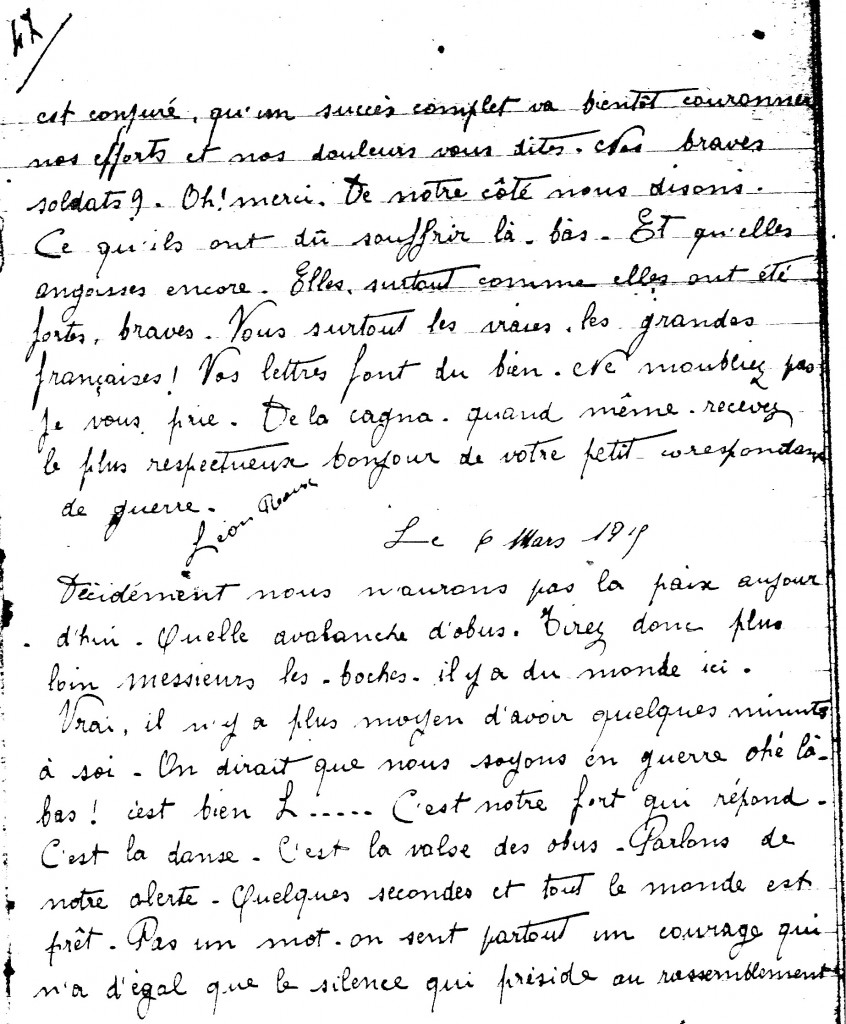 47
est conjuré, qu'un succès complet va bientôt couronner
nos efforts et nos douleurs vous dites. Nos braves
soldats ?. Oh! merci. De notre côté nous disons.
Ce qu'ils ont dû souffrir là-bas. Et qu'elles
angoisses encore. Elles, surtout comme elles ont été
fortes, braves. Vous surtout les vraies, les grandes
françaises! Vos lettres font du bien. Ne moubliez pas
Je vous prie. De la cagna. quand même. recevez
le plus respectueux bonjour de votre petit corespondant
de guerre.
Léon
Le 6 Mars 1915
Décidément nous n'aurons pas la paix aujour
d'hui. Quelle avalanche d'obus. Tirez donc plus
loin messieurs les-boches. il y a du monde ici.
Vrai, il n'y a plus moyen d'avoir quelques minuts
à soi. On dirait que nous soyons en guerre ohé là-
bas! c'est bien L..... C'est notre fort qui répond.
C'est la danse. C'est la valse des obus. Parlons de
notre alerte. Quelques secondes et tout le monde est
prêt. Pas un mot. on sent partout un courage qui
n'a d'égal que le silence qui préside au rassemblement